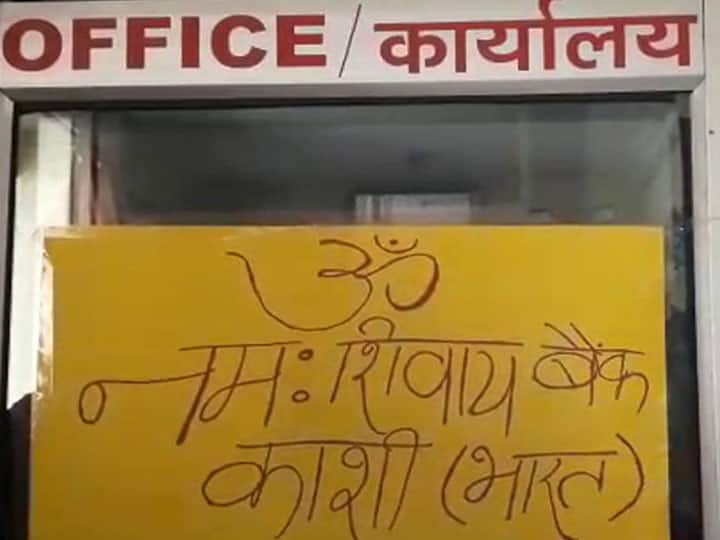 OFFICE/कार्यालय
ॐ
नम: शिवाय बैंक
काशी (भारत)